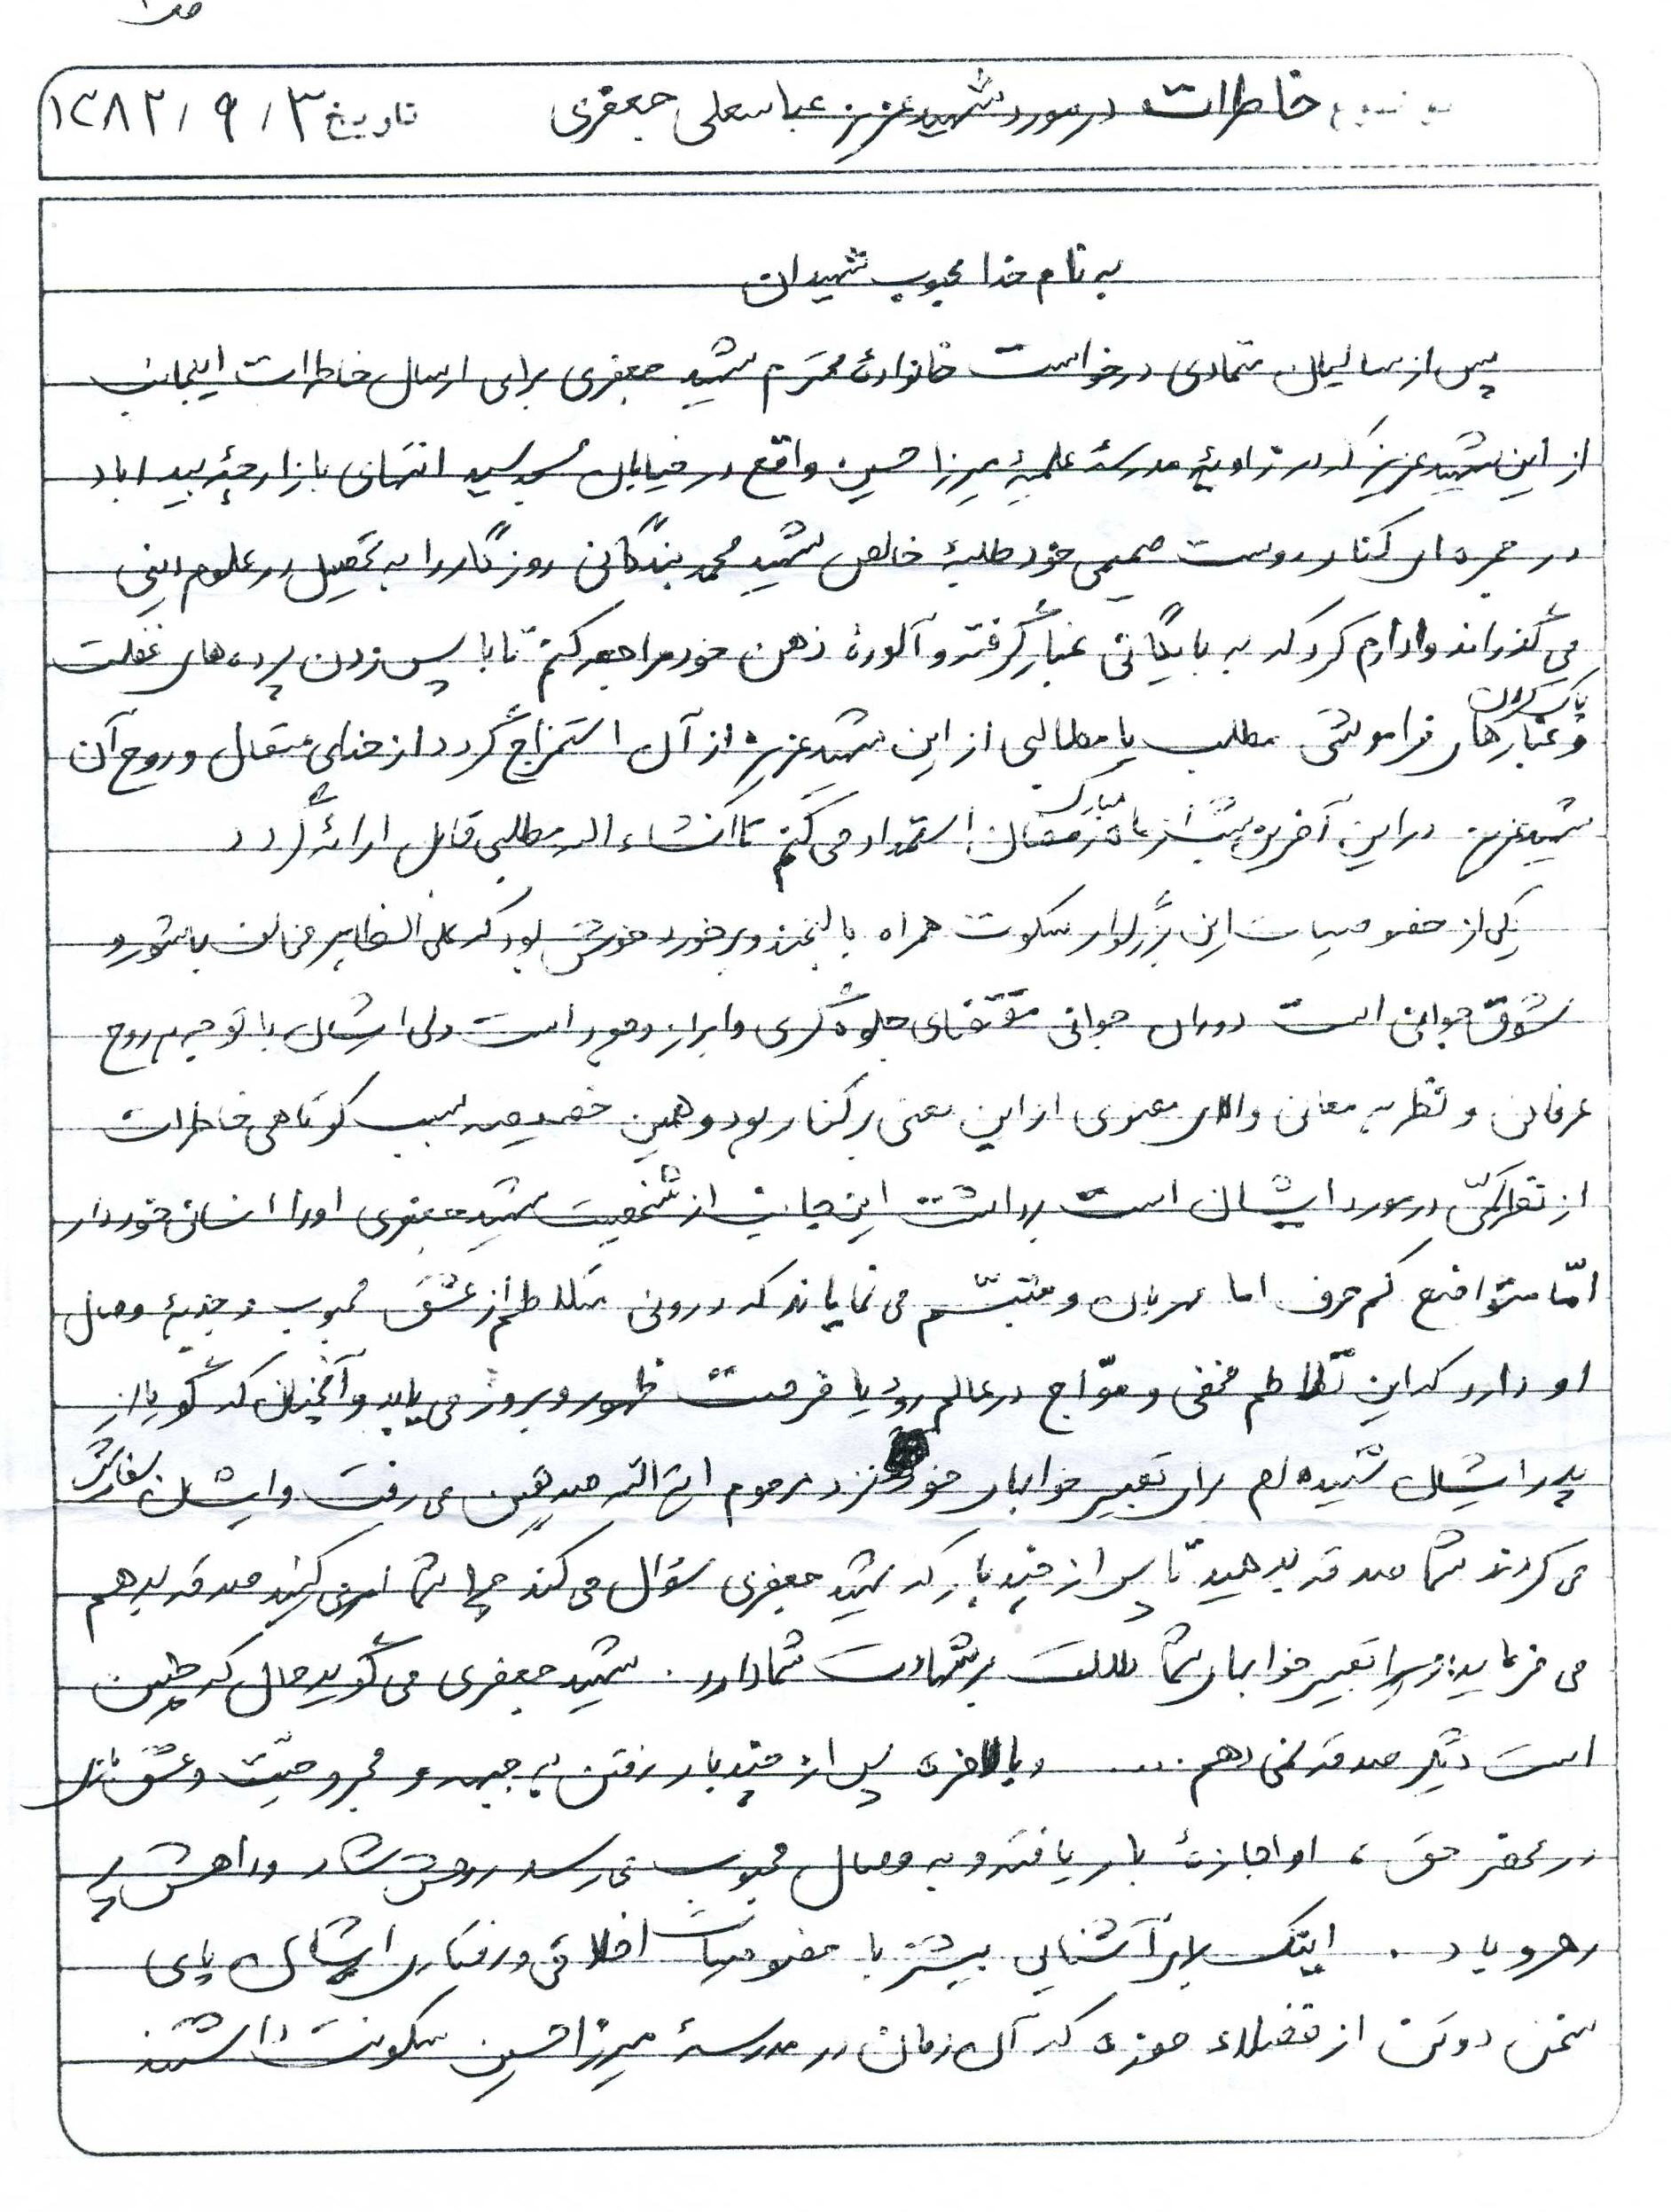 موضوع خاطرات در مورد شهید عزیز عباسعلی جعفری تاریخ ۱۳۸۲/۹/۳
به نام خدا محبوب شهیدان
پس از سالیان متمادی درخواست خانوادۀ محترم شهید جعفری برای ارسال خاطرات اینجانب
از این شهید عزیز که در زاویۀ مدرسۀ علمیۀ میرزا حسین واقع در خیابان مسجد سید انتهای بازارچۀ بیدآباد
در حجره ای کنار دوست صمیمی خود طلبۀ خالص شهید محمد بندگانی روزگار را به تحصیل در علوم دینی
می گذراند وادارم کرد که به بایگانی غبار گرفته و آلودۀ ذهن خود مراجعه کنم تا با پس زدن پرده های غفلت
و پاک کردن غبارهای فراموشی مطلب یا مطالبی از این شهید عزیز از آن استخراج گردد از خدای متعال و روح آن
شهید عزیز در این آخرین شب از ماه مبارک رمضان استمداد می کنم تا انشاء الله مطلبی قابل ارائه گردد
یکی از خصوصیات این بزرگوار سکوت همراه با لبخند و برخورد خوش بود که علی الظاهر مخالف با شور و
شوق جوانی است دوران جوانی مقتضای جلوه گری و ابراز وجود است ولی ایشان با توجه به روح
عرفانی و نظر به معانی والای معنوی از این معنی برکنار بود و همین خصیصه سبب کوتاهی خاطرات
از نظر کمّی در مورد ایشان است برداشت این جانب از شخصیت شهید جعفری او را انسانی خوددار
امّا متواضع کم حرف اما مهربان و متبسّم می نمایاند که درونی متلاطم از عشق محبوب و جذبۀ وصال
او دارد که این تلاطم مخفی و موّاج در عالم رؤیا فرصت ظهور و بروز می یابد و آنچنان که گویا از
پدر ایشان شنیده ام برای تعبیر خوابهای خود نزد مرحوم آیة الله صدیقین می رفت و ایشان سفارش
می کردند شما صدقه بدهید تا پس از چند بار که شهید جعفری سؤال می کند چرا شما امر می کنید صدقه بدهم
می فرماید: زیرا تعبیر خوابهای شما دلالت بر شهادت شما دارد. شهید جعفری می گوید حال که چنین
است دیگر صدقه نمی دهم .... و بالاخره پس از چند بار رفتن به جبهه و مجروحیّت و عشق بازی
در محضر حق، او اجازۀ بار یافته و به وصال محبوب می رسد روحش شاد و راهش پر
رهرو باد. اینک برای آشنایی بیشتر با خصوصیات اخلاقی و رفتاری ایشان پای
سخن دو تن از فضلاء حوزه که آن زمان در مدرسۀ میرزا حسین سکونت داشتند